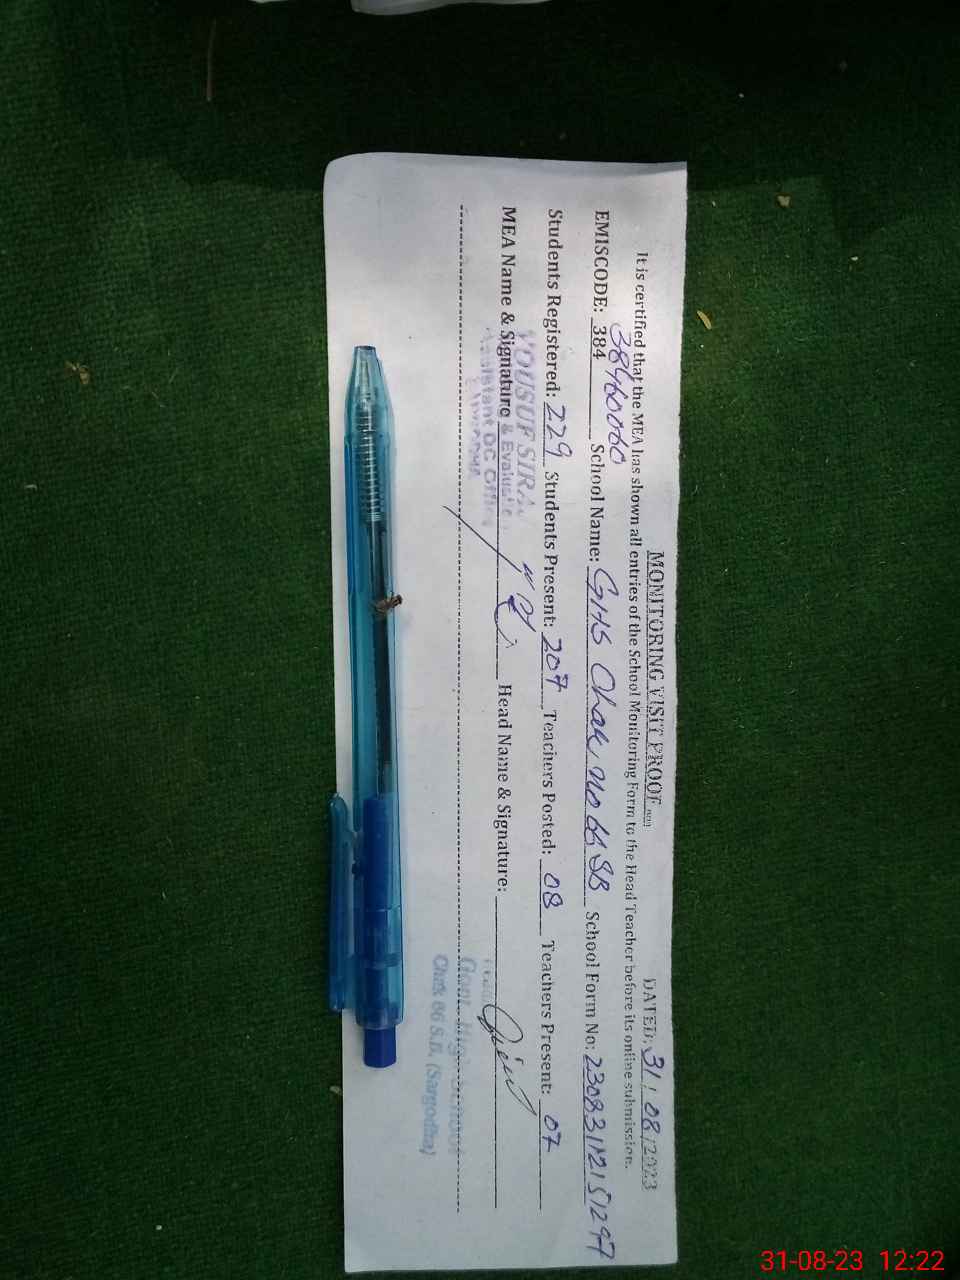 MONITORING VISIT PROOF DATED: 31/08/2023
It is certified that the MEA has shown all entries of the School Monitoring Form to the Head Teacher before its online submission.
38460060
EMISCODE: 384 School Name: GHS Chak no 66 SB School Form No:
Students Registered: 229 Students Present: 207 Teachers Posted: 08 Teachers Present: 07
YOUSUF
MEA Name & Signature Head Name & Signature:
& Evaluation
Assistant DC Office
Govt. High School
Chak 66 S.B. (Sargodha)
31-08-23 12:22